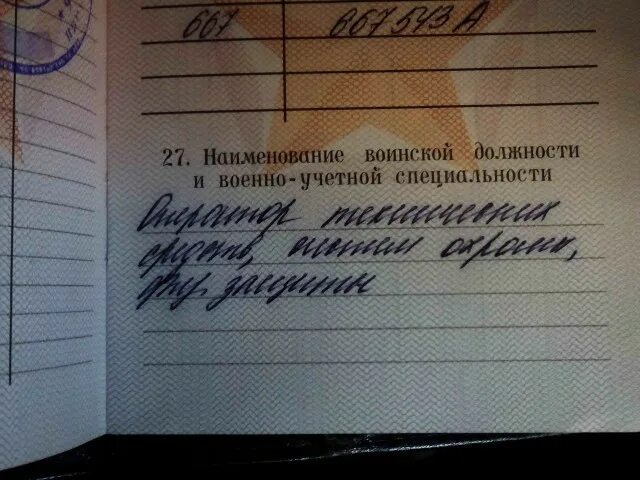 667 667543А
27. Наименование воинской должности
и военно-учетной специальности
Оператор технических
средств, систем охраны,
физ. защиты